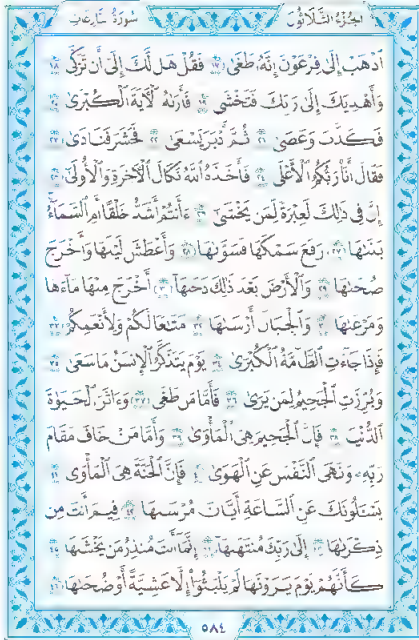 الجزء الثلاثون سورة النازعات
اذهب إلى فرعون إنه طغى ١٧ فقل هل لك إلى أن تزكى ١٨
وأهديك إلى ربك فتخشى ١٩ فأرىه الآية الكبرى ٢٠
فكذب وعصى ٢١ ثم أدبر يسعى ٢٢ فحشر فنادى ٢٣
فقال أنا ربكم الأعلى ٢٤ فأخذه الله نكال الآخرة والأولى ٢٥
إن في ذلك لعبرة لمن يخشى ٢٦ ءأنتم أشد خلقا أم السماء
بنىها ٢٧ رفع سمكها فسوىها ٢٨ وأغطش ليلها وأخرج
ضحىها ٢٩ والأرض بعد ذلك دحىها ٣٠ أخرج منها ماءها
ومرعىها ٣١ والجبال أرسىها ٣٢ متعا لكم ولأنعمكم ٣٣
فإذا جاءت الطامة الكبرى ٣٤ يوم يتذكر الإنسن ما سعى ٣٥
وبرزت الجحيم لمن يرى ٣٦ فأما من طغى ٣٧ وءاثر الحيوة
الدنيا ٣٨ فإن الجحيم هي المأوى ٣٩ وأما من خاف مقام
ربه ونهى النفس عن الهوى ٤٠ فإن الجنة هي المأوى ٤١
يسئلونك عن الساعة أيان مرسىها ٤٢ فيم أنت من
ذكرىها ٤٣ إلى ربك منتهىها ٤٤ إنما أنت منذر من يخشىها ٤٥
كأنهم يوم يرونها لم يلبثوا إلا عشية أو ضحىها ٤٦
٥٨٤